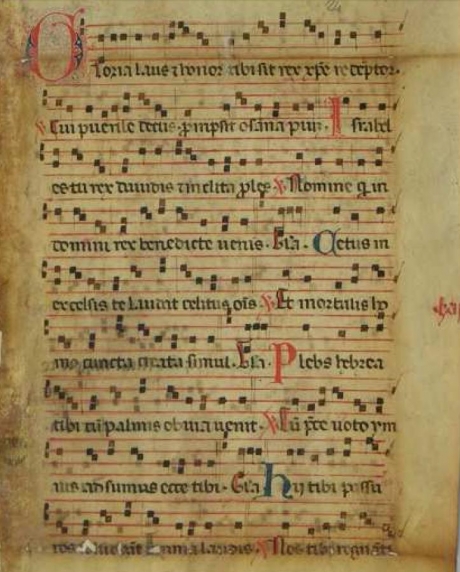 Gloria laus ⁊ honor tibi sit rex xpe redeptor.
℣ Cui puerile decus prompsit osana pium. Israhel
es tu rex dauidis ⁊ inclita ples ℣ Nomine q in
domini rex benedicte uenis. Gla. Cetus in
excelsis te laudat celitus ois ℣ Et mortalis ho
mo cuncta creata simul. Gla. Plebs hebrea
tibi cu palmis obuia uenit. ℣ Cu pce uoto ym
nis adsumus ecce tibi. Gla hij tibi passu
ros laudis ℣ Nos tibi regnati